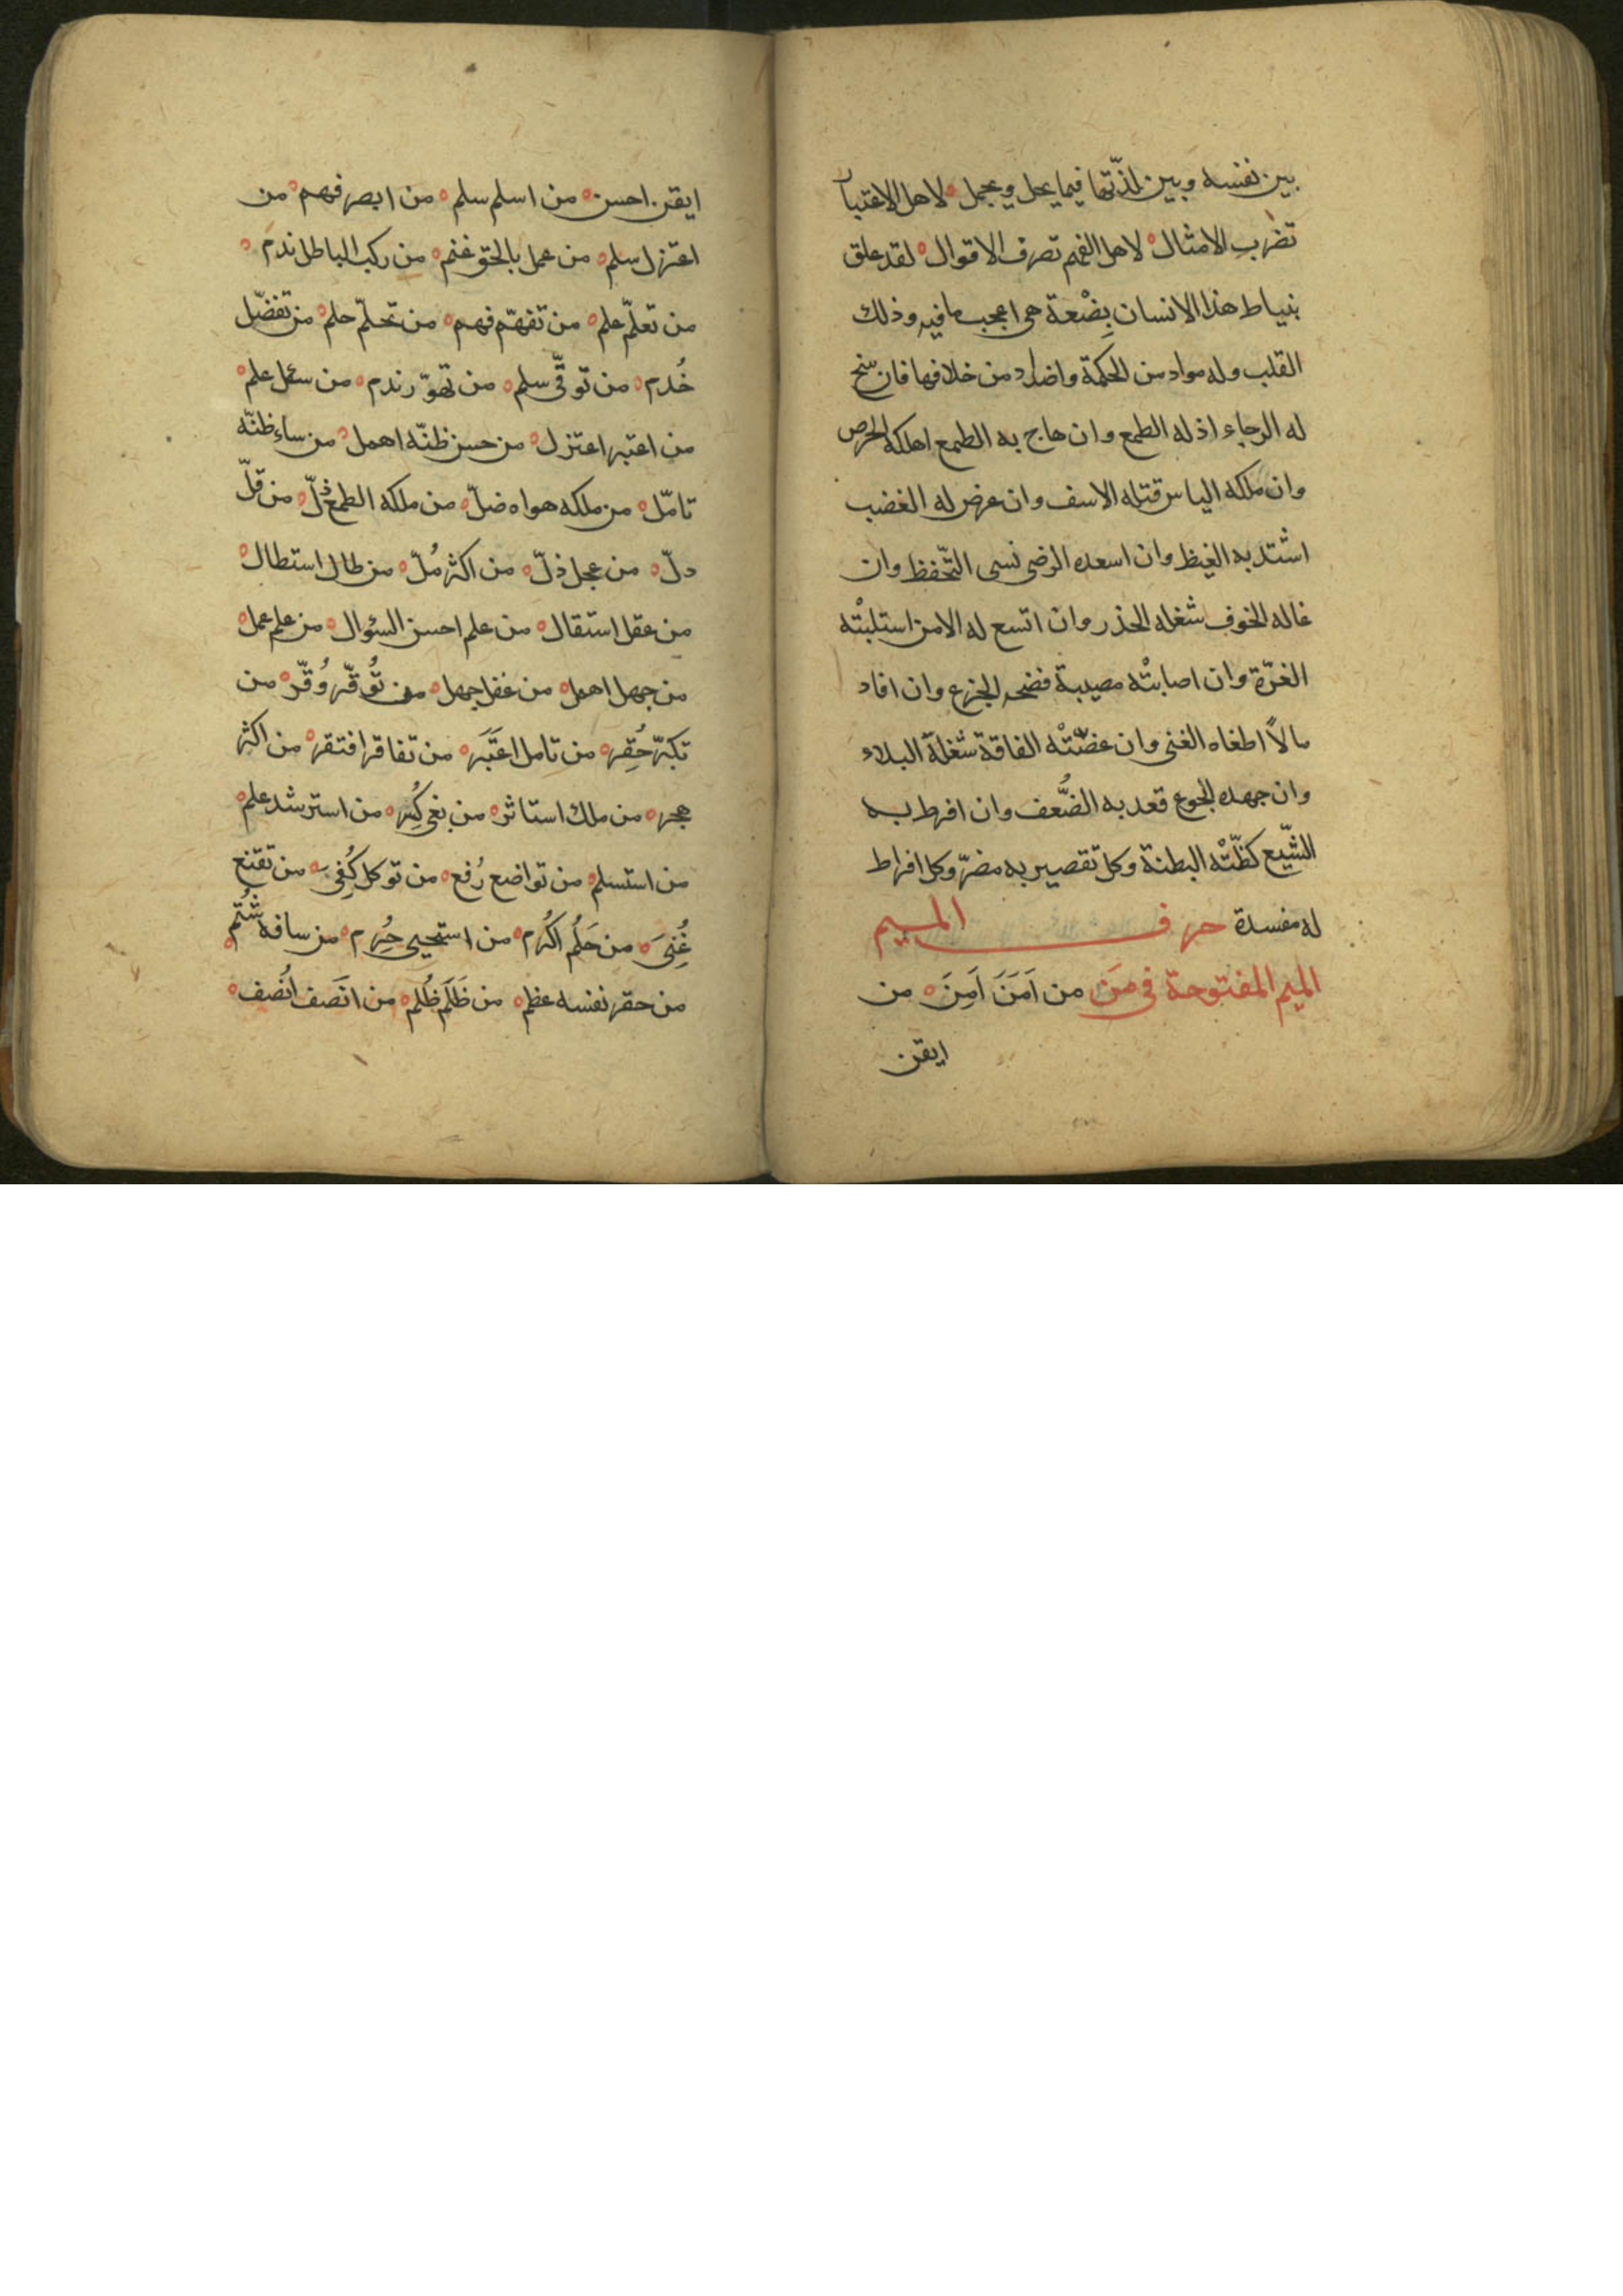 بين نفسه وبين لذّتها فيما يحل ويجمل ه لاهل الاعتبار
تضرب الامثال ه لاهل الفهم تصرف الاقوال ه لقد علق
بنياط هذا الانسان بِضْعة هى اعجب ما فيه وذلك
القلب وله مواد من الحكمة واضداد من خلافها فان سنح
له الرجاء اذله الطمع وان هاج به الطمع اهلكه الحرص
وان ملكه الياس قتله الاسف وان عرض له الغضب
اشتد به الغيظ وان اسعده الرضى نسى التّحفظ وان
غاله الخوف شغله الحذر وان اتسع له الامن استلبتْه
الغرّة وان اصابتْه مصيبة فضحه الجزع وان افاد
مالاً اطغاه الغنى وان عضّتْه الفاقة شغلة البلاء
وان جهده الجوع قعد به الضُّعف وان افرط به
الشّبع كظّتْه البطنة وكل تقصير به مضرّ وكل افراط
له مفسدة حرف الميم
الميم المفتوحة فى مَن من اَمَنَ اَمِنَ ه من
ايقن
ايقن احسن ه من اسلم سلم ه من ابصر فهم ه من
اعتزل سلم ه من عمل بالحق غنم ه من ركب الباطل ندم ه
من تعلّم علم ه من تفهّم فهم ه من تحلّم حلم ه من تفضّل
خُدم ه من توقّى سلم ه من تهوّر ندم ه من سئل علم ه
من اعتبر اعتزل ه من حسن ظنّه اهمل ه من ساء ظنّه
تامّل ه من ملكه هواه ضلّ ه من ملكه الطمع ذلّ ه من قلّ
دلّ ه من عجل ذلّ ه من اكثر مُلّ ه من طال استطال ه
من عقل استقال ه من علم احسن السئوال ه من علم عمل ه
من جهل اهمل ه من غفل جهل ه من تُوقّر وُقّر ه من
تكبّر حُقِر ه من تامل اعتَبَر ه من تفاقر افتقر ه من اكثر
هجر ه من ملك استاثر ه من بغى كُسِر ه من استرشد علم ه
من استسلم ه من تواضع رُفع ه من توكل كُفِى ه من تقنع
غُنِىَ ه من حَلُم اكُرم ه من استحيى حُرِم ه من سافه شُتم ه
من حقر نفسه عظم ه من ظَلَم ظُلم ه من انَصَف اُنصف ه